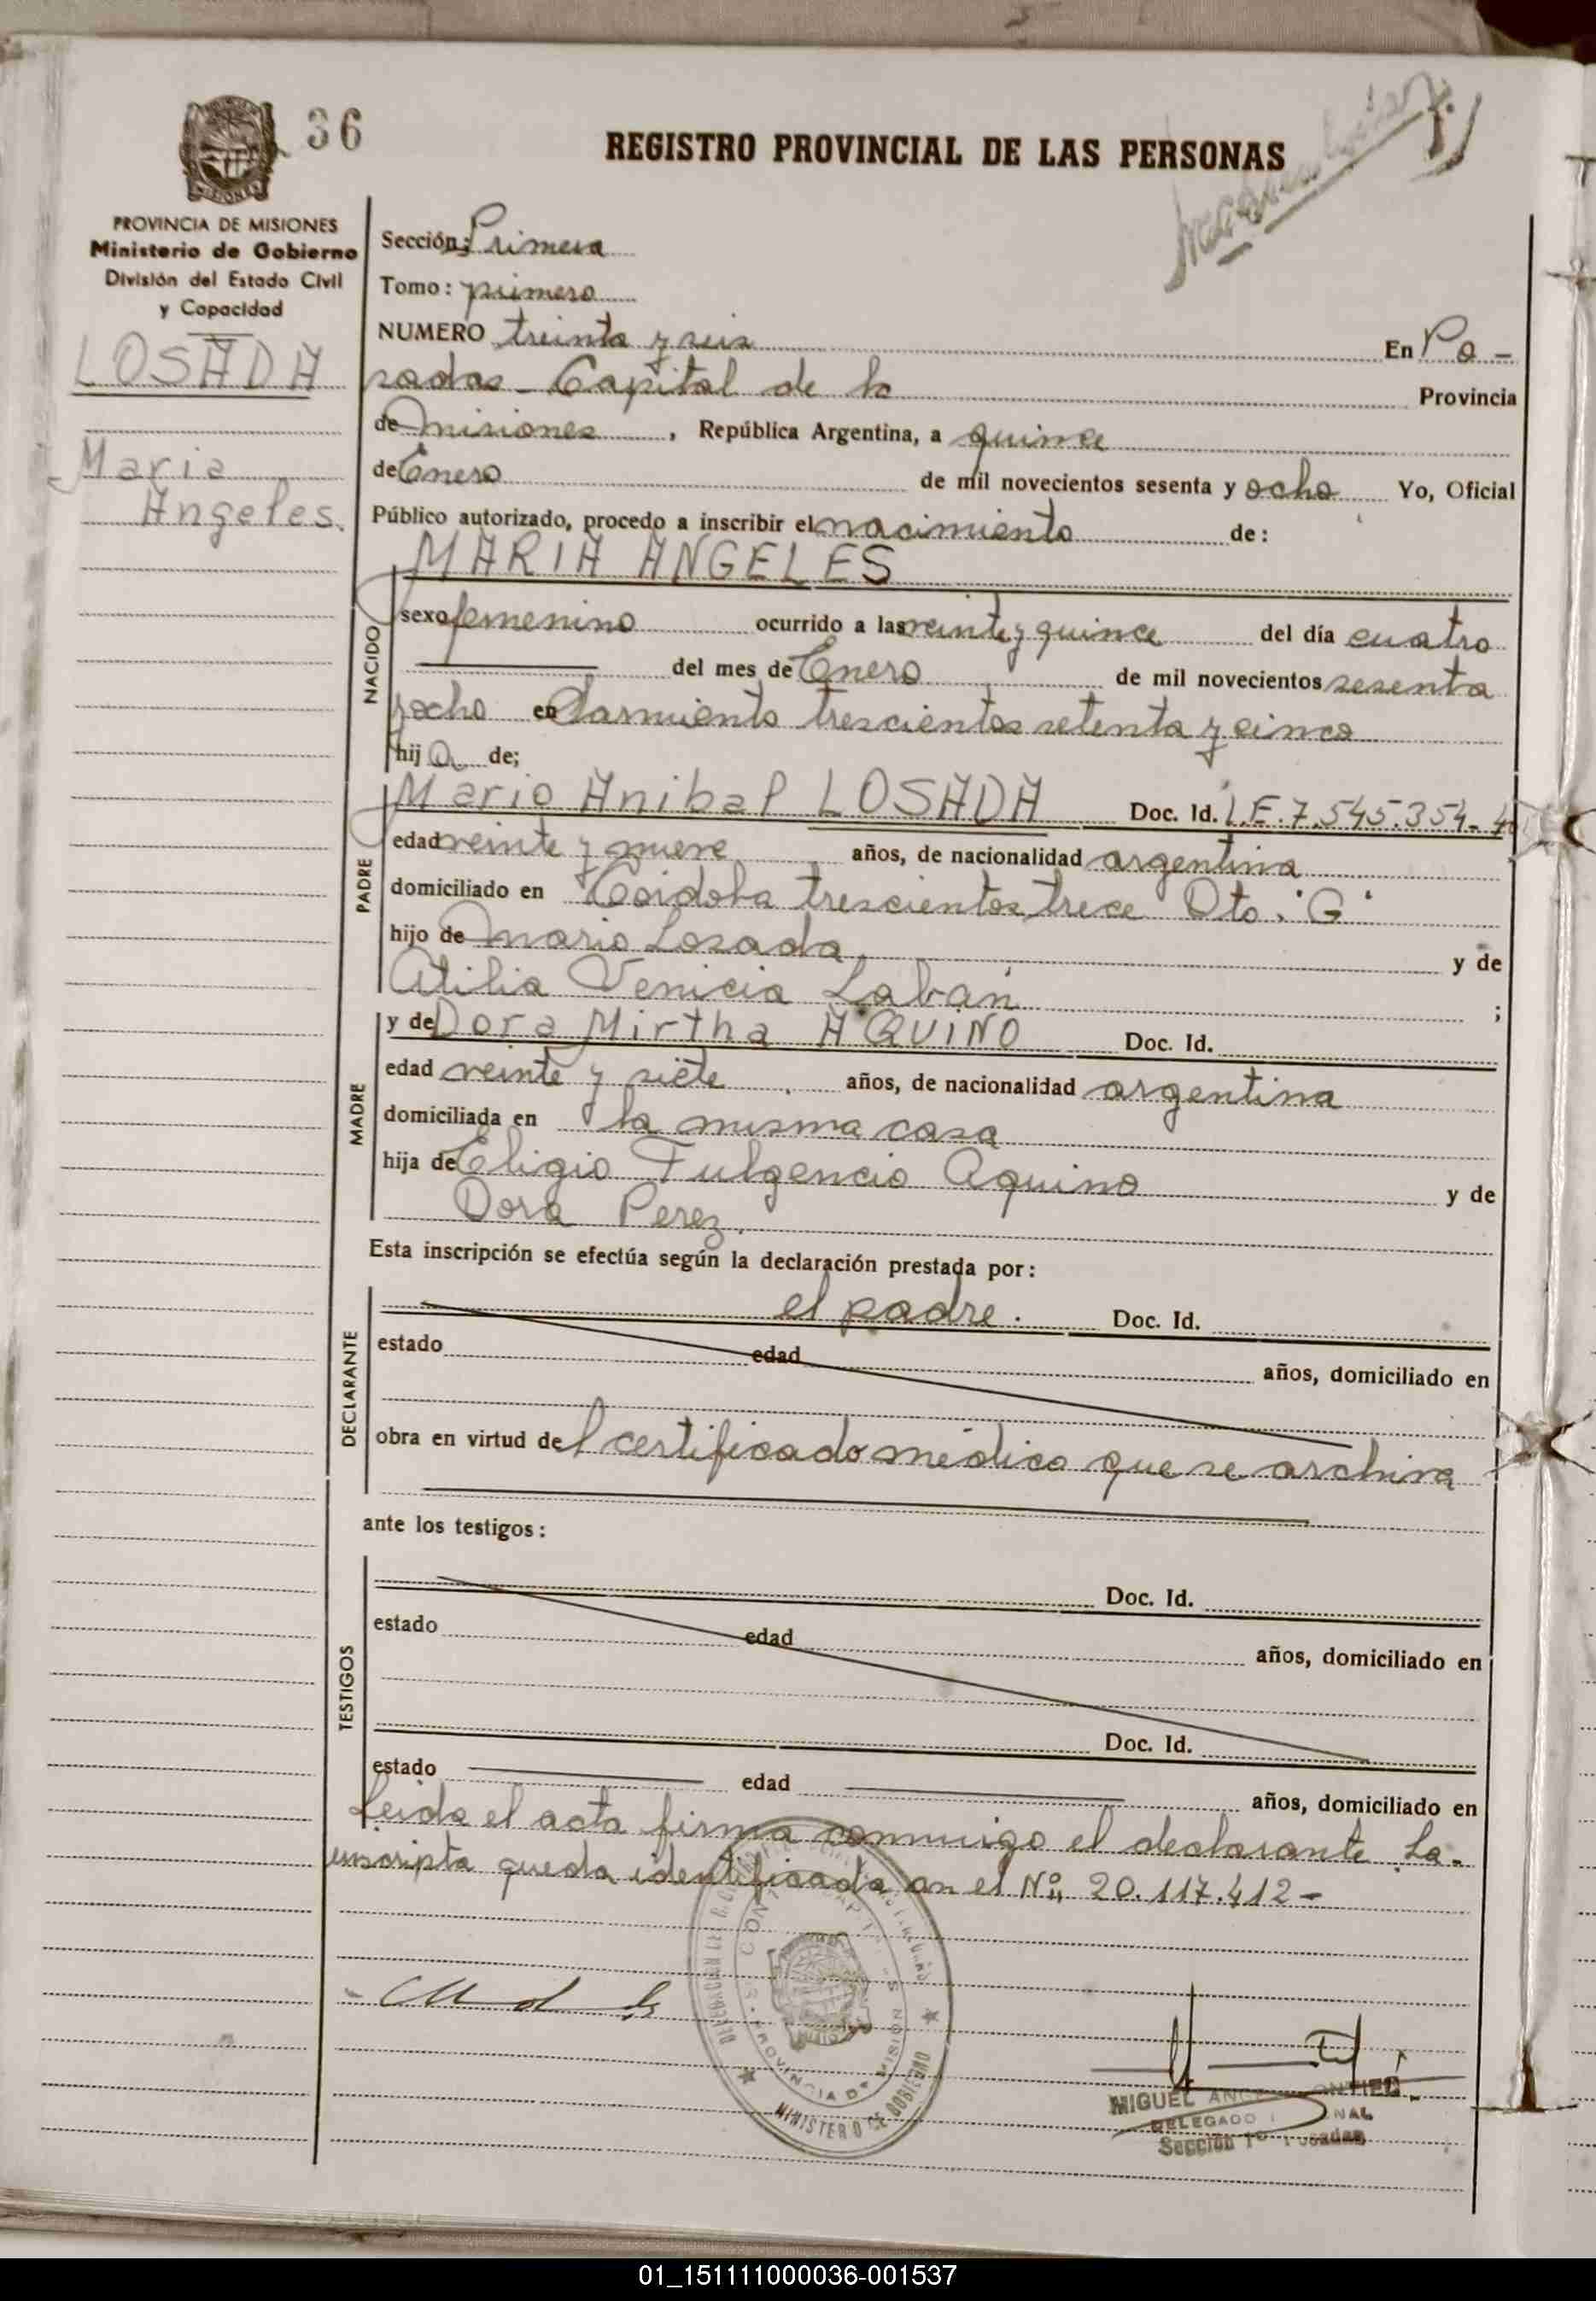 36
REGISTRO PROVINCIAL DE LAS PERSONAS
PROVINCIA DE MISIONES
Ministerio de Gobierno
División del Estado Civil
y Capacidad
LOSADA
Maria
Angeles.
Sección: Primera
Tomo: primero
NUMERO treinta y seis En Po-
sadas - Capital de la Provincia
de Misiones, República Argentina, a quince
de Enero de mil novecientos sesenta y ocho Yo, Oficial
Público autorizado, procedo a inscribir el nacimiento de:
MARIA ANGELES
NACIDO
sexo femenino ocurrido a las veinte y quince del día cuatro
del mes de Enero de mil novecientos sesenta
y ocho en Sarmiento trescientos setenta y cinco
hija de;
PADRE
Mario Anibal LOSADA Doc. Id. L.E. 7.545.354-
edad veinte y nueve años, de nacionalidad argentina
domiciliado en Cordoba trescientos trece Dto. "G"
hijo de Mario Losada y de
Atilia Venicia Labán ;
MADRE
y de Dora Mirtha AQUINO Doc. Id.
edad veinte y siete años, de nacionalidad argentina
domiciliada en la misma casa
hija de Eligio Fulgencio Aquino y de
Dora Perez.
Esta inscripción se efectúa según la declaración prestada por:
DECLARANTE
el padre. Doc. Id.
estado edad años, domiciliado en
obra en virtud del certificado médico que se archiva
ante los testigos:
TESTIGOS
Doc. Id.
estado edad años, domiciliado en
Doc. Id.
estado edad años, domiciliado en
Leida el acta firma conmigo el declarante. La
inscripta queda identificada con el Nº 20.117.412-
PROVINCIA DE MISIONES
MINISTERIO DE GOBIERNO
MIGUEL
DELEGADO
Sección 1º Posadas
01_151111000036-001537